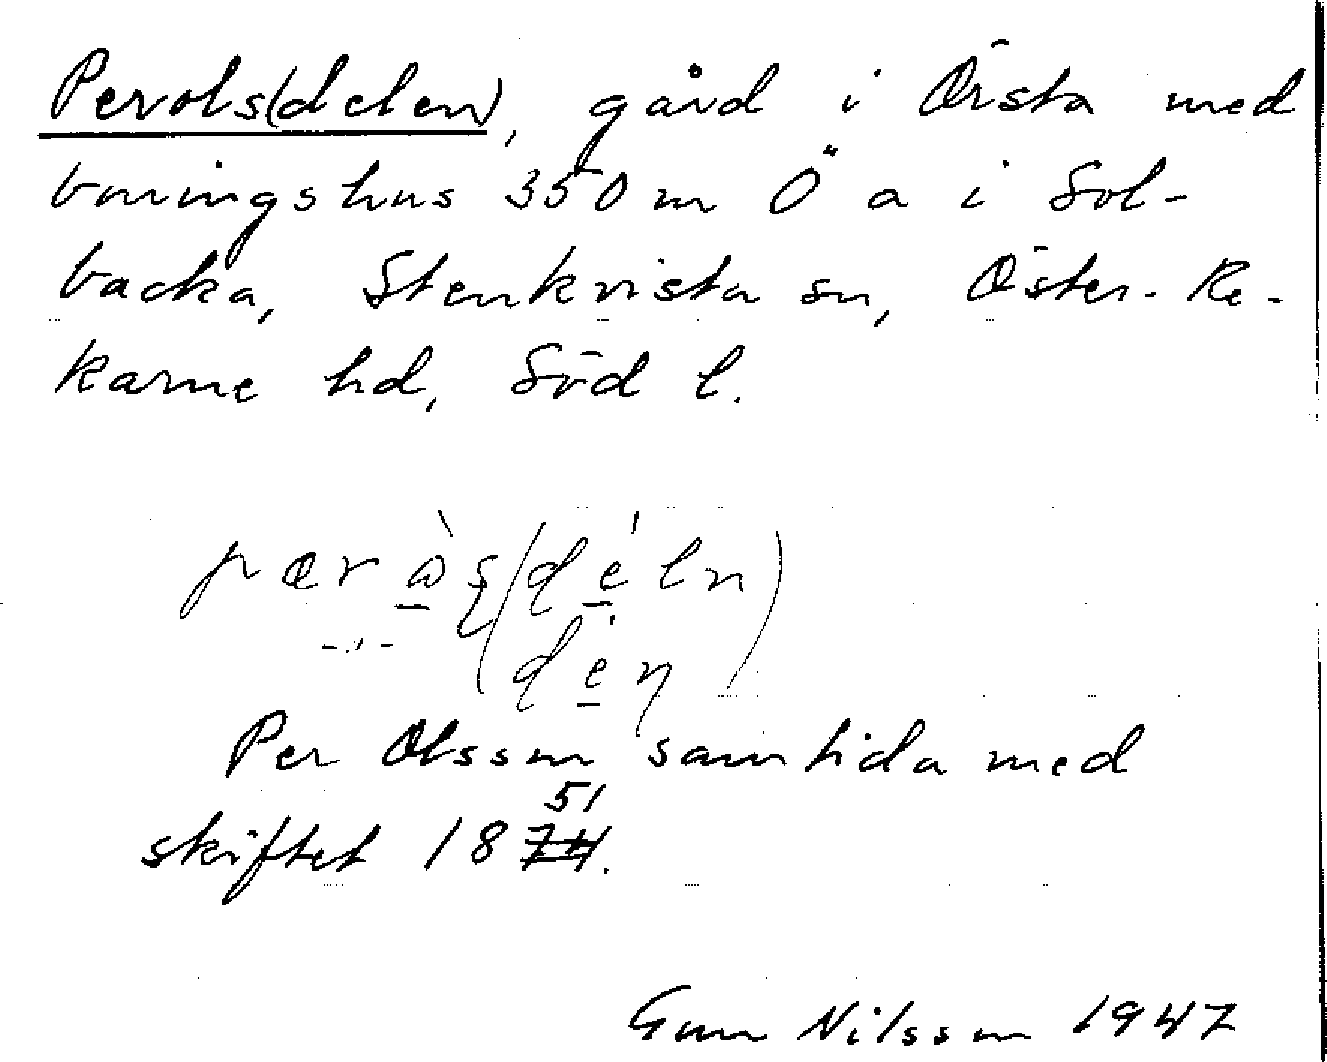 Perols(delen), gård i Örsta med
boningshus 350 m Ö "a i Sol-
backa, Stenkvista sn, Öster-Re-
karne hd, Söd l.
deln)
Per Olsson samtida med
51
skiftet 1874.
Gun Nilsson 1947